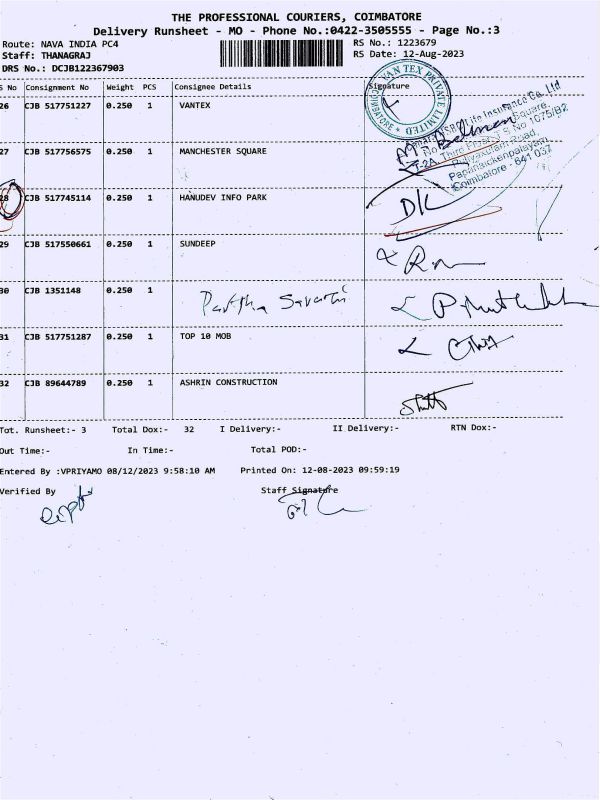 THE PROFESSIONAL COURIERS, COIMBATORE
Delivery Runsheet - MO - Phone No.:0422-3505555 - Page No.:3
Route: NAVA INDIA PC4
RS No.: 1223679
Staff: THANAGRAJ
RS Date: 12-Aug-2023
DRS No.: DCJB122367903
S No Consignment No Weight PCS Consignee Details Signature
26 CJB 517751227 0.250 1 VANTEX
VAN TEX PRIVATE LIMITED
COIMBATORE
SBI Life Insurance Co. Ltd
Square,
T-2A, Third Floor, S.No 1075/B2
Road,
Papanaickenpalayam,
Coimbatore - 641 037
27 CJB 517756575 0.250 1 MANCHESTER SQUARE
28 CJB 517745114 0.250 1 HANUDEV INFO PARK DK
29 CJB 517550661 0.250 1 SUNDEEP
30 CJB 1351148 0.250 1 Partha Sarathi
31 CJB 517751287 0.250 1 TOP 10 MOB
32 CJB 89644789 0.250 1 ASHRIN CONSTRUCTION
Tot. Runsheet:- 3 Total Dox:- 32 I Delivery:- II Delivery:- RTN Dox:-
Out Time:- In Time:- Total POD:-
Entered By :VPRIYAMO 08/12/2023 9:58:10 AM Printed On: 12-08-2023 09:59:19
Verified By Staff Signature